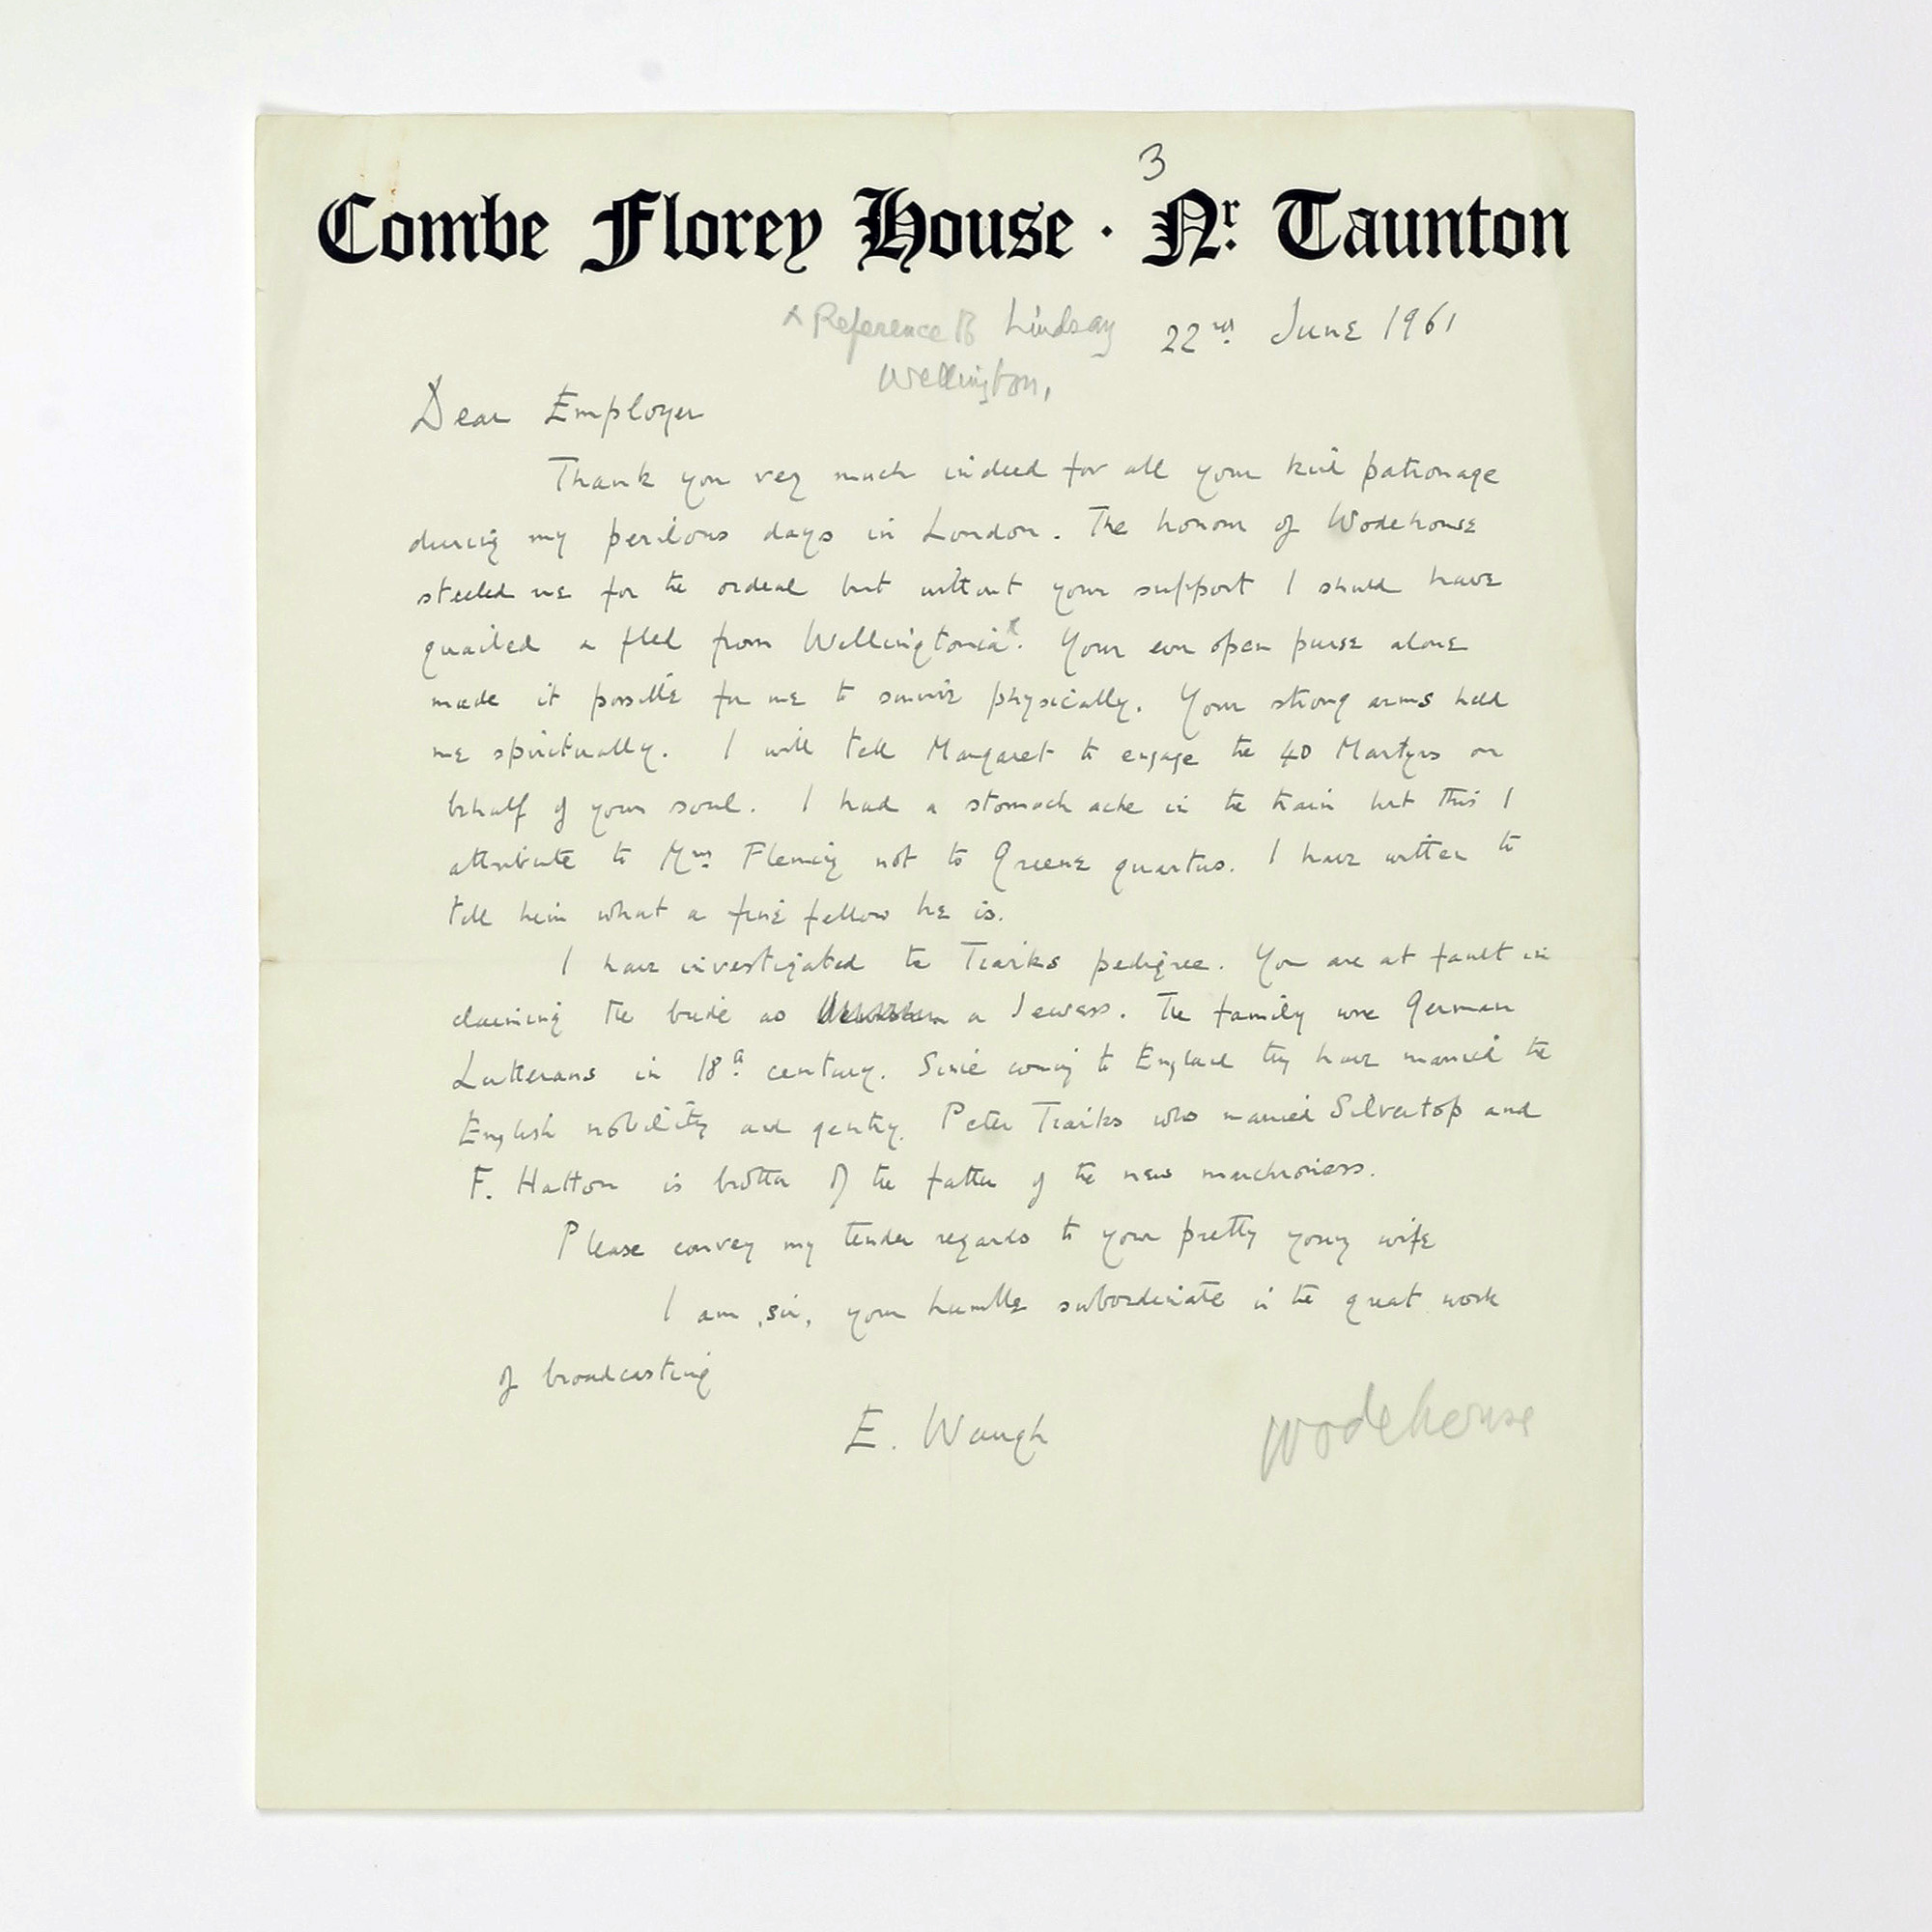 3
Combe Florey House · Nr. Taunton
x Reference to Lindsay 22nd June 1961
Wellington,
Dear Employer
Thank you very much indeed for all your kind patronage
during my perilous days in London. The honour of Wodehouse
steeled me for the ordeal but without your support I should have
quailed & fled from Wellingtonia x. Your own open purse alone
made it possible for me to survive physically. Your strong arms held
me spiritually. I will tell Margaret to engage the 40 Martyrs on
behalf of your soul. I had a stomach ache in the train but this I
attribute to Mrs Fleming not to Greene quartus. I have written to
tell him what a fine fellow he is.
I have investigated the Tiarks pedigree. You are at fault in
claiming the bride as a Jewess. The family were German
Lutherans in 18th century. Since coming to England they have married the
English nobility and gentry. Peter Tiarks who married Silvertop and
F. Hatton is brother of the father of the new marchioness.
Please convey my tender regards to your pretty young wife
I am, sir, your humble subordinate in the great work
of broadcasting
E. Waugh Wodehouse